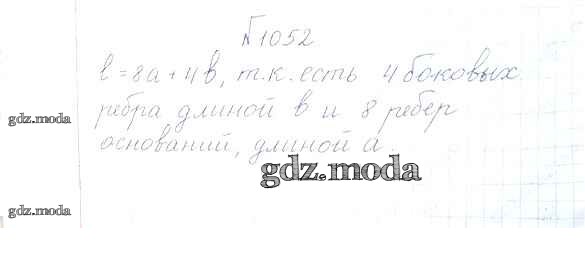 №1052
l=8a+4b, т.к. есть 4 боковых
gdz.moda
ребра длиной b и 8 ребер
оснований, длиной a.
gdz.moda
gdz.moda